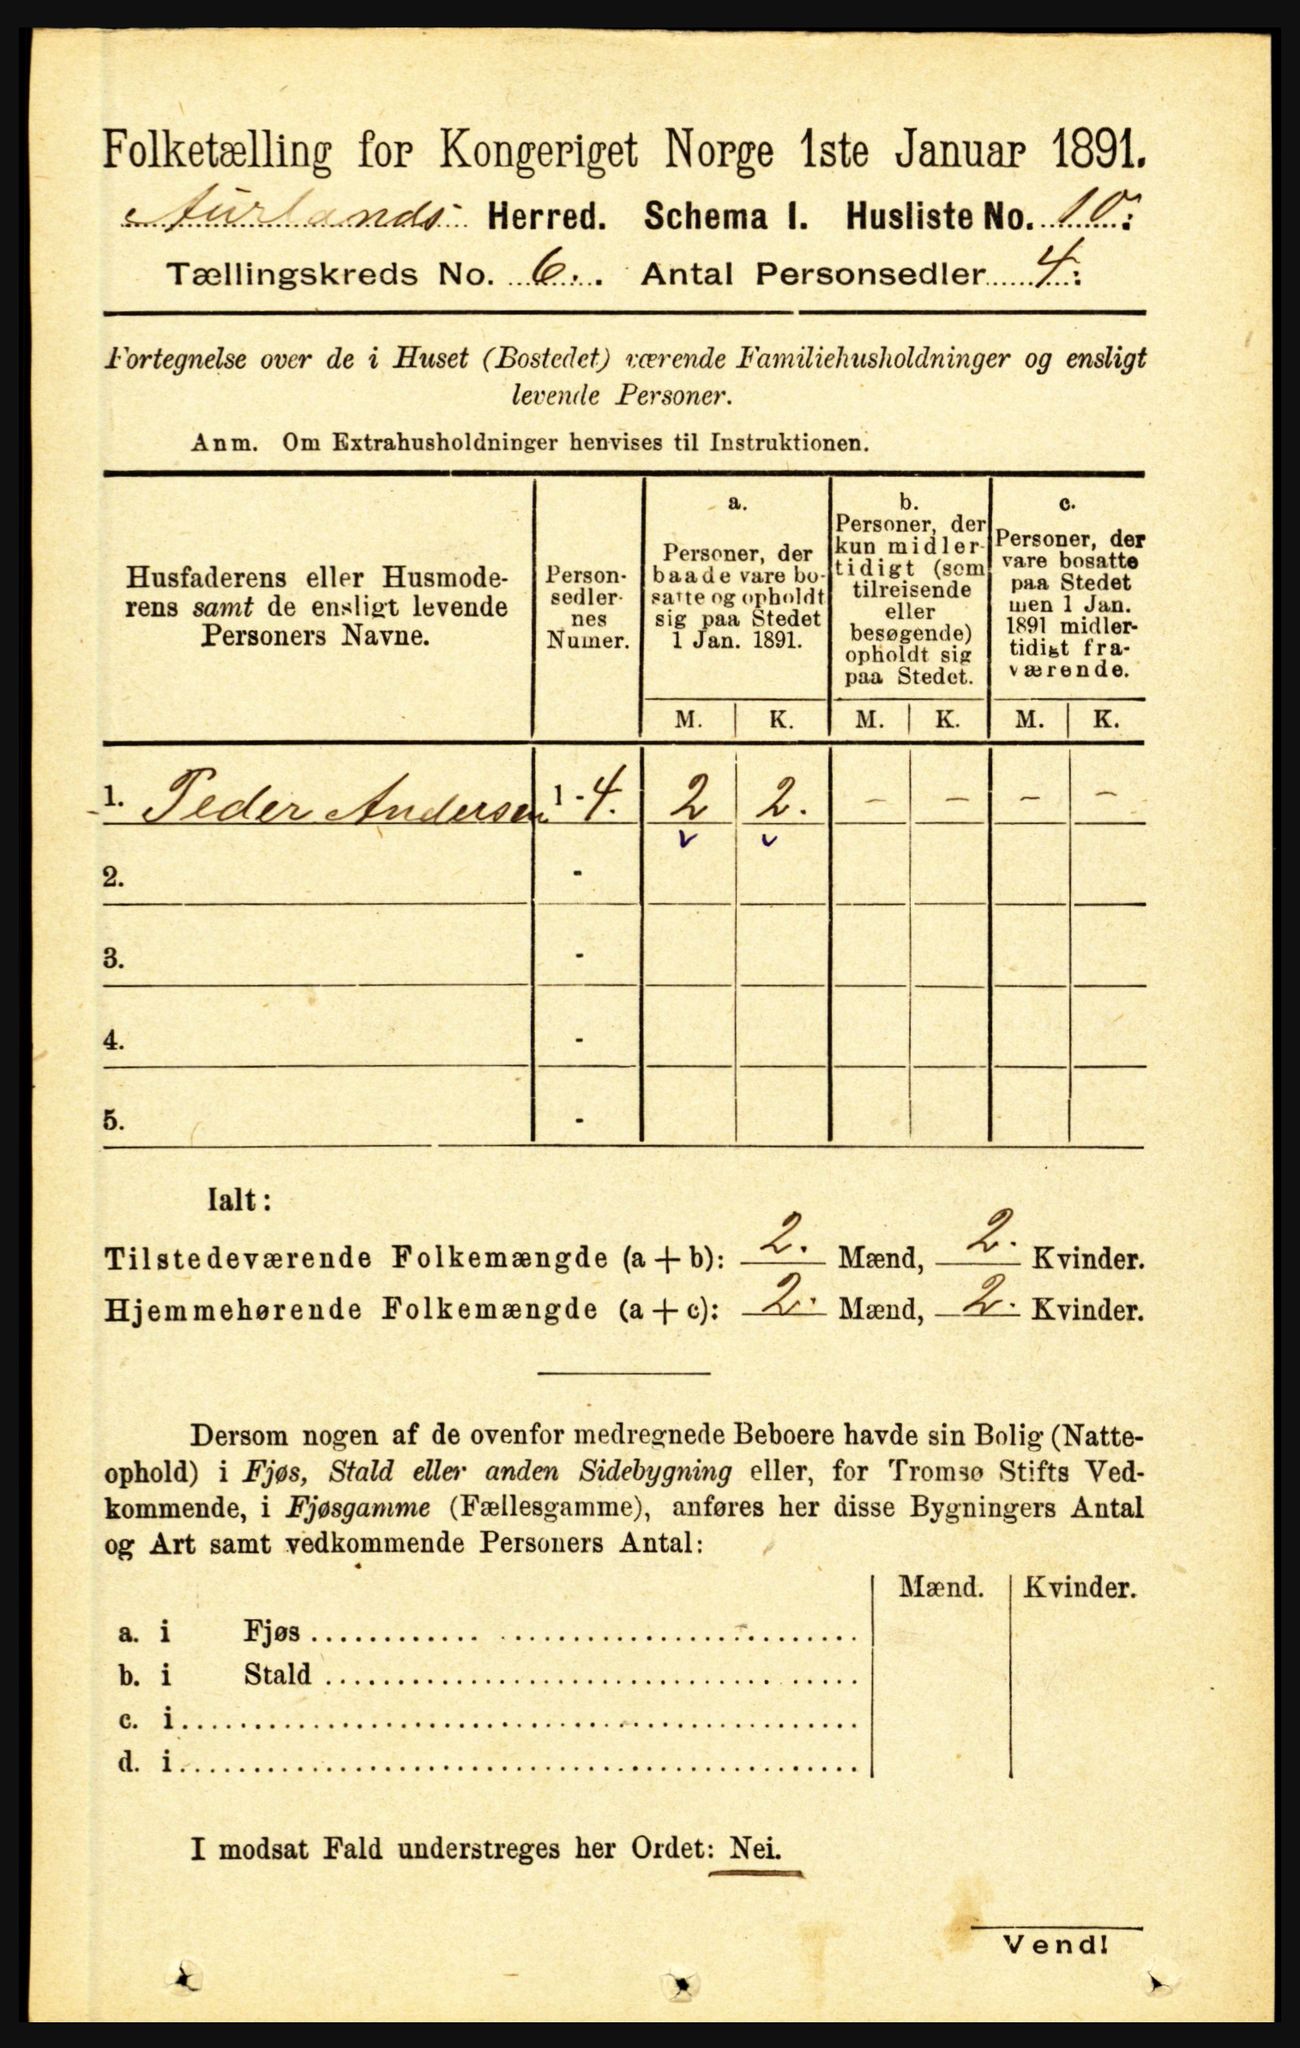 Folketælling for Kongeriget Norge 1ste Januar 1891.
Aurlands Herred. Schema I. Husliste No. 10:
Tællingskreds No. 6. Antal Personsedler 4:
Fortegnelse over de i Huset (Bostedet) værende Familiehusholdninger og ensligt
levende Personer.
Anm. Om Extrahusholdninger henvises til Instruktionen.
Husfaderens eller Husmode-
rens samt de ensligt levende
Personers Navne.
Person-
sedler-
nes
Numer.
a.
Personer, der
baade vare bo-
satte og opholdt
sig paa Stedet
1 Jan. 1891.
b.
Personer, der
kun midler-
tidigt (som
tilreisende
eller
besøgende)
opholdt sig
paa Stedet.
c.
Personer, der
vare bosatte
paa Stedet
men 1 Jan.
1891 midler-
tidigt fra-
værende.
M. K. M. K. M. K.
1. Peder Andersen 1 - 4. 2 2. - - - -
2. -
3. -
4. -
5. -
Ialt:
Tilstedeværende Folkemængde (a + b): 2. Mænd, 2. Kvinder.
Hjemmehørende Folkemængde (a + c): 2. Mænd, 2. Kvinder.
Dersom nogen af de ovenfor medregnede Beboere havde sin Bolig (Natte-
ophold) i Fjøs, Stald eller anden Sidebygning eller, for Tromsø Stifts Ved-
kommende, i Fjøsgamme (Fællesgamme), anføres her disse Bygningers Antal
og Art samt vedkommende Personers Antal:
Mænd. Kvinder.
a. i Fjøs
b. i Stald
c. i
d. i
I modsat Fald understreges her Ordet: Nei.
Vend!